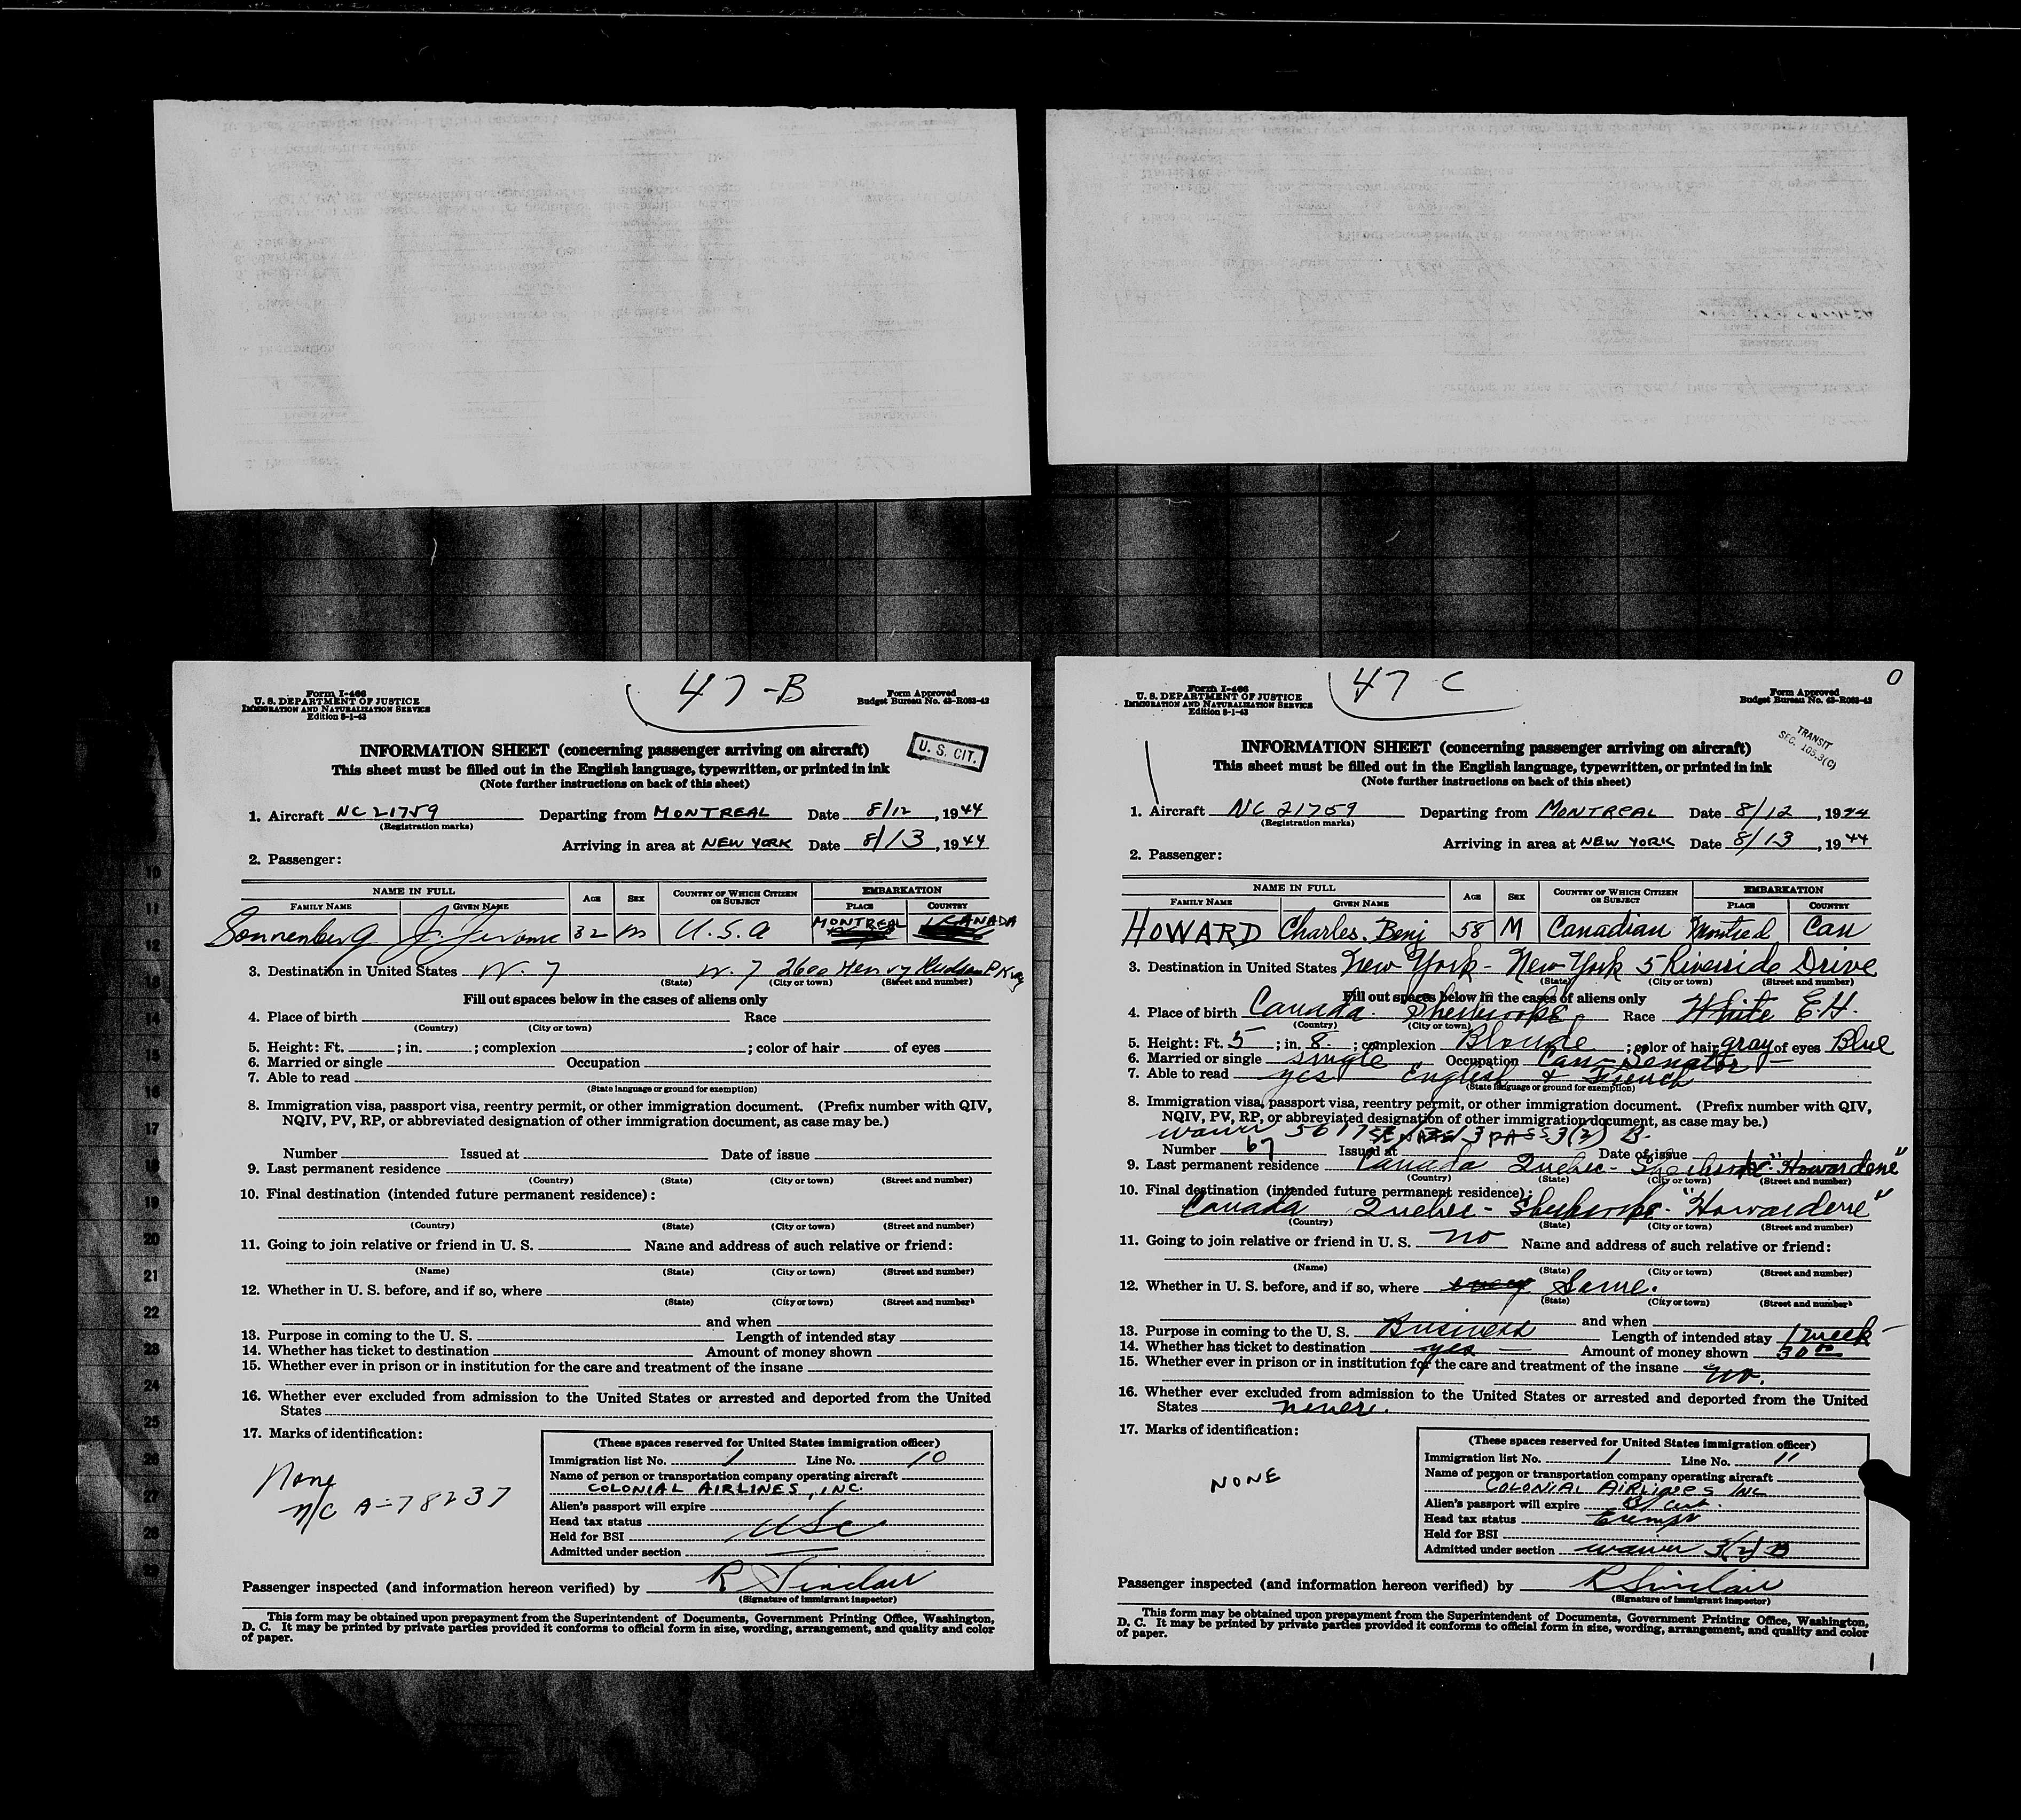 47-B
Form I-466
U. S. DEPARTMENT OF JUSTICE
IMMIGRATION AND NATURALIZATION SERVICE
Edition 8-1-43
Form Approved
Budget Bureau No. 43-R063-42
INFORMATION SHEET (concerning passenger arriving on aircraft)
U. S. CIT.
This sheet must be filled out in the English language, typewritten, or printed in ink
(Note further instructions on back of this sheet)
1. Aircraft NC 21759 Departing from MONTREAL Date 8/12, 1944
(Registration marks)
Arriving in area at NEW YORK Date 8/13, 1944
2. Passenger:
NAME IN FULL AGE SEX COUNTRY OF WHICH CITIZEN OR SUBJECT EMBARKATION
FAMILY NAME GIVEN NAME PLACE COUNTRY
Sonnenberg J. Jerome 32 m U.S.A MONTREAL CANADA
3. Destination in United States N. Y N. Y 2600 Henry Hudson Pkwy
(State) (City or town) (Street and number)
Fill out spaces below in the cases of aliens only
4. Place of birth Race
(Country) (City or town)
5. Height: Ft. ; in. ; complexion ; color of hair of eyes
6. Married or single Occupation
7. Able to read
(State language or ground for exemption)
8. Immigration visa, passport visa, reentry permit, or other immigration document. (Prefix number with QIV,
NQIV, PV, RP, or abbreviated designation of other immigration document, as case may be.)
Number Issued at Date of issue
9. Last permanent residence
(Country) (State) (City or town) (Street and number)
10. Final destination (intended future permanent residence):
(Country) (State) (City or town) (Street and number)
11. Going to join relative or friend in U. S. Name and address of such relative or friend:
(Name) (State) (City or town) (Street and number)
12. Whether in U. S. before, and if so, where
(State) (City or town) (Street and number)
and when
13. Purpose in coming to the U. S. Length of intended stay
14. Whether has ticket to destination Amount of money shown
15. Whether ever in prison or in institution for the care and treatment of the insane
16. Whether ever excluded from admission to the United States or arrested and deported from the United
States
17. Marks of identification:
None
N/C A-78237
(These spaces reserved for United States immigration officer)
Immigration list No. 1 Line No. 10
Name of person or transportation company operating aircraft
COLONIAL AIRLINES, INC.
Alien's passport will expire
Head tax status USC
Held for BSI
Admitted under section
Passenger inspected (and information hereon verified) by R Sinclair
(Signature of immigrant inspector)
This form may be obtained upon prepayment from the Superintendent of Documents, Government Printing Office, Washington,
D. C. It may be printed by private parties provided it conforms to official form in size, wording, arrangement, and quality and color
of paper.
47 C
0
Form I-466
U. S. DEPARTMENT OF JUSTICE
IMMIGRATION AND NATURALIZATION SERVICE
Edition 8-1-43
Form Approved
Budget Bureau No. 43-R063-42
INFORMATION SHEET (concerning passenger arriving on aircraft)
TRANSIT
SEC. 105.3(C)
This sheet must be filled out in the English language, typewritten, or printed in ink
(Note further instructions on back of this sheet)
1. Aircraft NC 21759 Departing from MONTREAL Date 8/12, 1944
(Registration marks)
Arriving in area at NEW YORK Date 8/13, 1944
2. Passenger:
NAME IN FULL AGE SEX COUNTRY OF WHICH CITIZEN OR SUBJECT EMBARKATION
FAMILY NAME GIVEN NAME PLACE COUNTRY
HOWARD Charles. Benj 58 M Canadian Montreal Can
3. Destination in United States New York - New York 5 Riverside Drive
(State) (City or town) (Street and number)
Fill out spaces below in the cases of aliens only
4. Place of birth Canada. Sherbrooke. Race White E.H.
(Country) (City or town)
5. Height: Ft. 5 ; in. 8 ; complexion Blonde ; color of hair gray of eyes Blue
6. Married or single single Occupation Can- Senator
7. Able to read yes English & French
(State language or ground for exemption)
8. Immigration visa, passport visa, reentry permit, or other immigration document. (Prefix number with QIV,
NQIV, PV, RP, or abbreviated designation of other immigration document, as case may be.)
waiver PASS 3(2) B.
Number 67 Issued at Date of issue
9. Last permanent residence Canada Quebec- Sherbrooke- "Howardene"
(Country) (State) (City or town) (Street and number)
10. Final destination (intended future permanent residence):
Canada Quebec- Sherbrooke- "Howardene"
(Country) (State) (City or town) (Street and number)
11. Going to join relative or friend in U. S. no Name and address of such relative or friend:
(Name) (State) (City or town) (Street and number)
12. Whether in U. S. before, and if so, where Same.
(State) (City or town) (Street and number)
and when
13. Purpose in coming to the U. S. Business Length of intended stay 1 week
14. Whether has ticket to destination yes Amount of money shown 30 00
15. Whether ever in prison or in institution for the care and treatment of the insane no.
16. Whether ever excluded from admission to the United States or arrested and deported from the United
States never.
17. Marks of identification:
NONE
(These spaces reserved for United States immigration officer)
Immigration list No. 1 Line No. 11
Name of person or transportation company operating aircraft
COLONIAL AIRLINES INC
Alien's passport will expire
Head tax status Exempt
Held for BSI
Admitted under section waiver 3(2) B
Passenger inspected (and information hereon verified) by R Sinclair
(Signature of immigrant inspector)
This form may be obtained upon prepayment from the Superintendent of Documents, Government Printing Office, Washington,
D. C. It may be printed by private parties provided it conforms to official form in size, wording, arrangement, and quality and color
of paper.
1